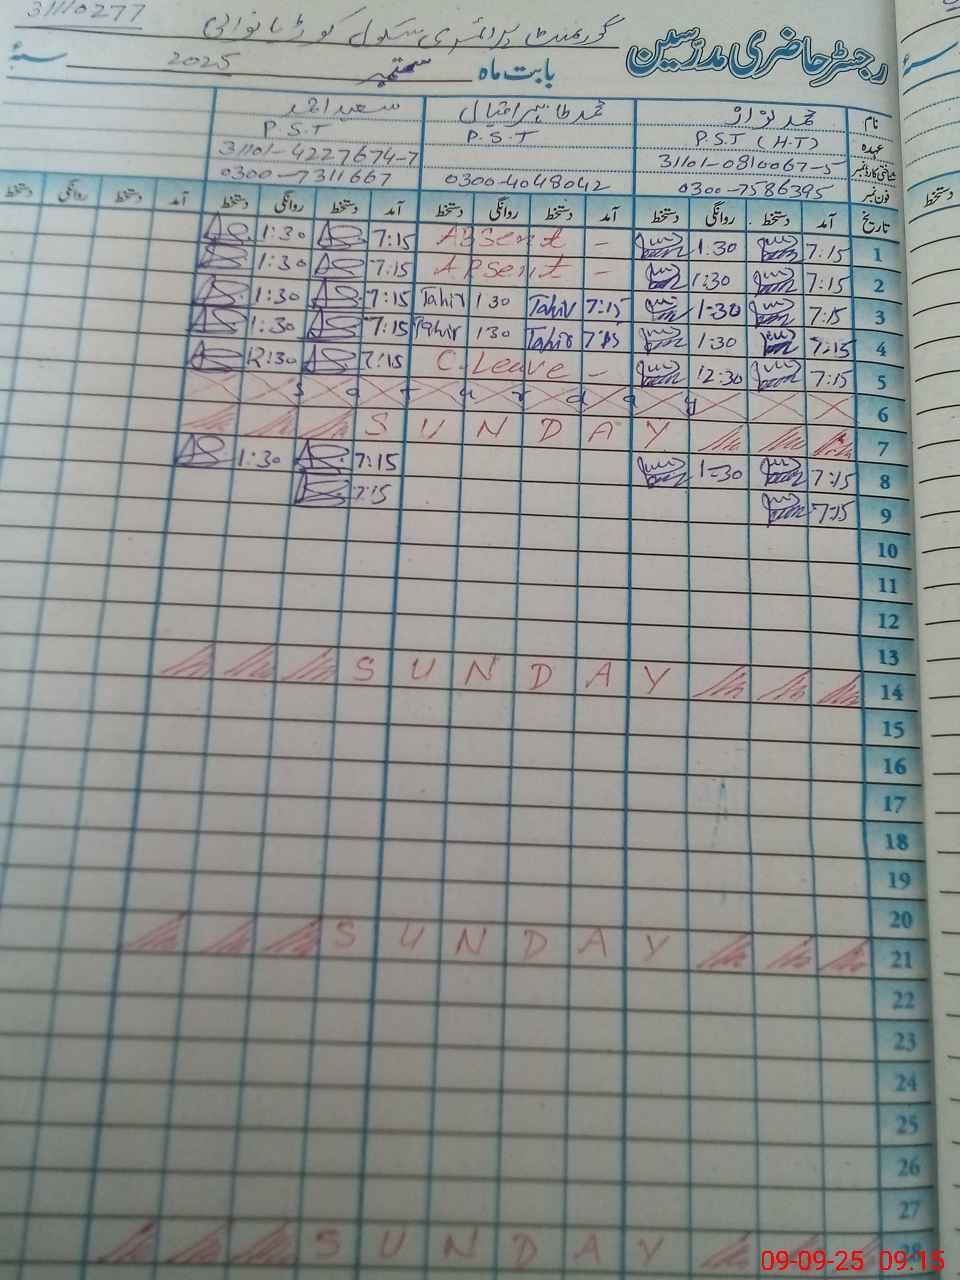 31110277
گورنمنٹ پرائمری سکول
رجسٹر حاضری مدرسین
بابت ماہ ستمبر 2025 سنۂ
نام محمد نواز محمد طاہر اقبال سعید احمد
عہدہ P.S.T (H.T) P.S.T P.S.T
شناختی کارڈ نمبر 31101-0810067-5 31101-4227674-7
فون نمبر 0300-7586395 0300-4048042 0300-7311667
تاریخ آمد دستخط روانگی دستخط آمد دستخط روانگی دستخط آمد دستخط روانگی دستخط آمد دستخط روانگی دستخط
1 7:15 1:30 - Absent 7:15 1:30
2 7:15 1:30 - Absent 7:15 1:30
3 7:15 1-30 7:15 Tahir 1 30 Tahir 7:15 1:30
4 7:15 1:30 7:15 Tahir 1 30 Tahir 7:15 1:30
5 7:15 12:30 - C.Leave 7:15 12:30
6 S a t u r d a y
7 S U N D A Y
8 7:15 1-30 7:15 1:30
9 7:15 7:15
10
11
12
13
14 S U N D A Y
15
16
17
18
19
20
21 S U N D A Y
22
23
24
25
26
27
28 S U N D A Y
دستخط
09-09-25 09:15